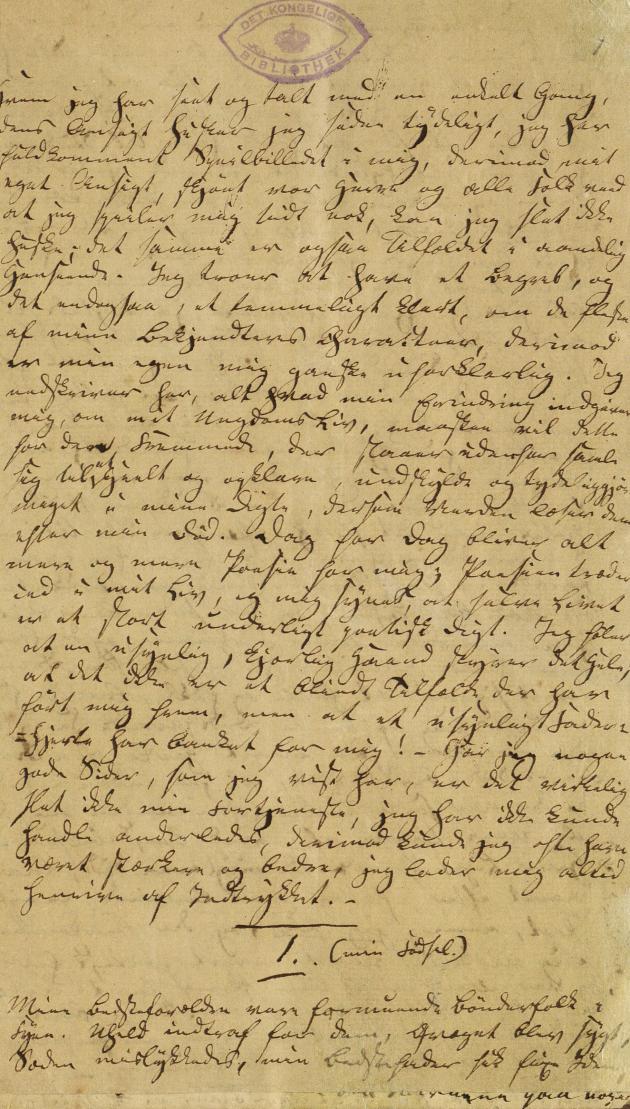 DET KONGELIGE
BIBLIOTHEK
1
Hvem jeg har seet og talt med en enkelt Gang,
dens Ansigt husker jeg siden tydeligt, jeg har
fuldkomment Speilbilledet i mig, derimod mit
eget Ansigt, skjønt vor Herre og alle Folk veed
at jeg speiler mig tidt nok, kan jeg slet ikke
huske; det samme er ogsaa Tilfældet i aandelig
Henseende. Jeg troer at have et Begreb, og
det endogsaa, et temmeligt klart, om de fleste
af mine Bekjendteres Charakteer, derimod
er min egen mig ganske uforklarlig. Jeg
nedskriver her, alt hvad min Erindring indgiver
mig, om mit Ungdoms Liv, maaskee vil dette
for den Fremmede, der staaer udenfor samle
sig til et Heelt og opklare, undskylde og tydeliggjøre
meget i mine Digte, dersom Verden læser dem
efter min Død. Dag for Dag bliver alt
mere og mere Poesie for mig; Poesien træder
ind i mit Liv, og mig synes, at selve Livet
er et stort underligt poetisk Digt. Jeg føler
at en usynlig, kjærlig Haand styrer det Hele,
at det ikke er et blindt Tilfælde der har
ført mig frem, men at et usynligt Fader-
-Hjerte har banket for mig! – Har jeg nogen
gode Sider, som jeg vist har, er det virkelig
slet ikke min Fortjeneste, jeg har ikke kunde
handle anderledes, derimod kunde jeg ofte have
været stærkere og bedre, jeg lader mig altid
henrive af Indtrykket. –
1. (min Fødsel.)
Mine Bedsteforældre vare formuende Bønderfolk i
Fyen. Uheld indtraf for dem, Qvæget blev sygt,
Sæden mislykkedes, min Bedstefader fik fixe Ide
gaa